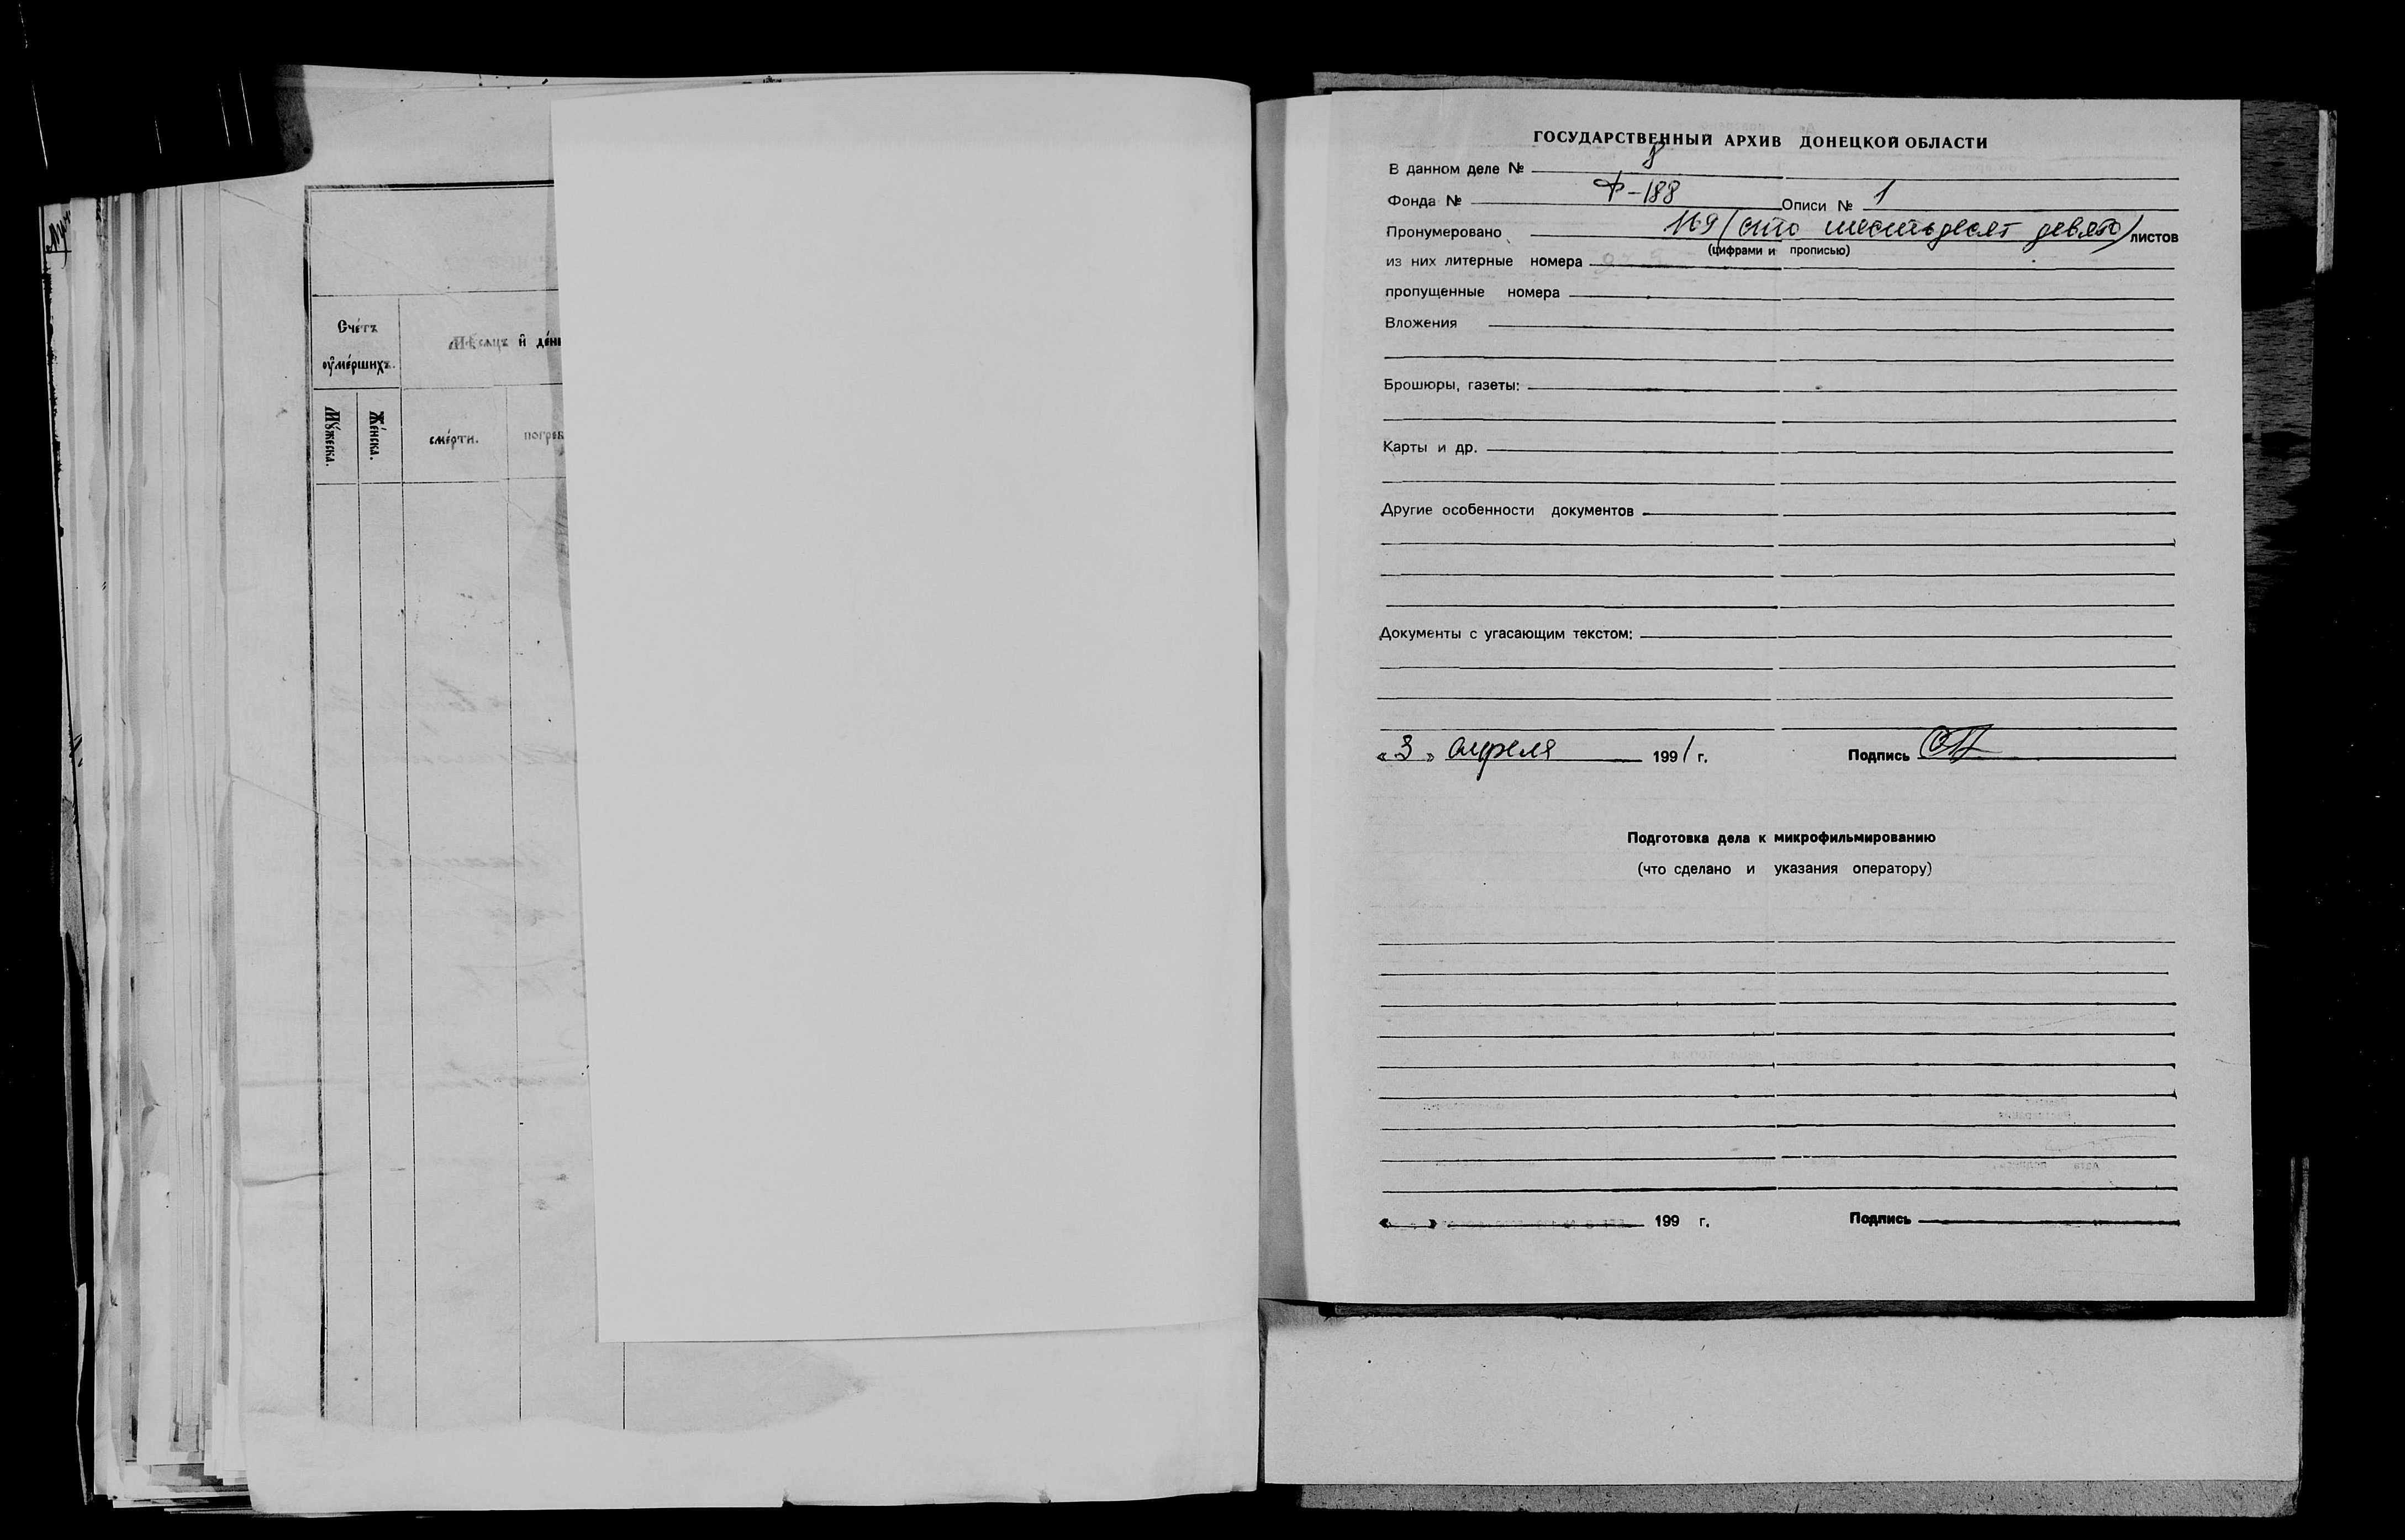 Счетъ
оумершихъ.
Мѣсяцъ и
Мужеска.
Женска.
смерти.
ГОСУДАРСТВЕННЫЙ АРХИВ ДОНЕЦКОЙ ОБЛАСТИ
В данном деле № 8
Фонда № Ф-188 Описи № 1
Пронумеровано 169 (сто шестьдесят девять) листов
(цифрами и прописью)
из них литерные номера
пропущенные номера
Вложения
Брошюры, газеты:
Карты и др.
Другие особенности документов
Документы с угасающим текстом:
«3» апреля 1991 г. Подпись
Подготовка дела к микрофильмированию
(что сделано и указания оператору)
« » 199 г. Подпись